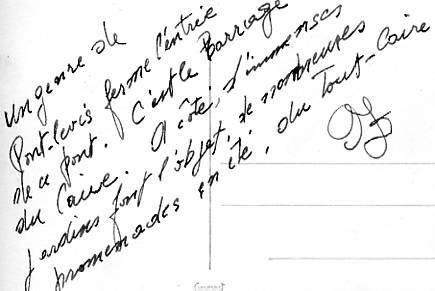 Un genre de
Pont-levis ferme l'entrée
de ce pont. C'est le Barrage
du Caire. A côté, d'immenses
jardins font l'objet, de nombreuses
promenades en été, du Tout-Caire